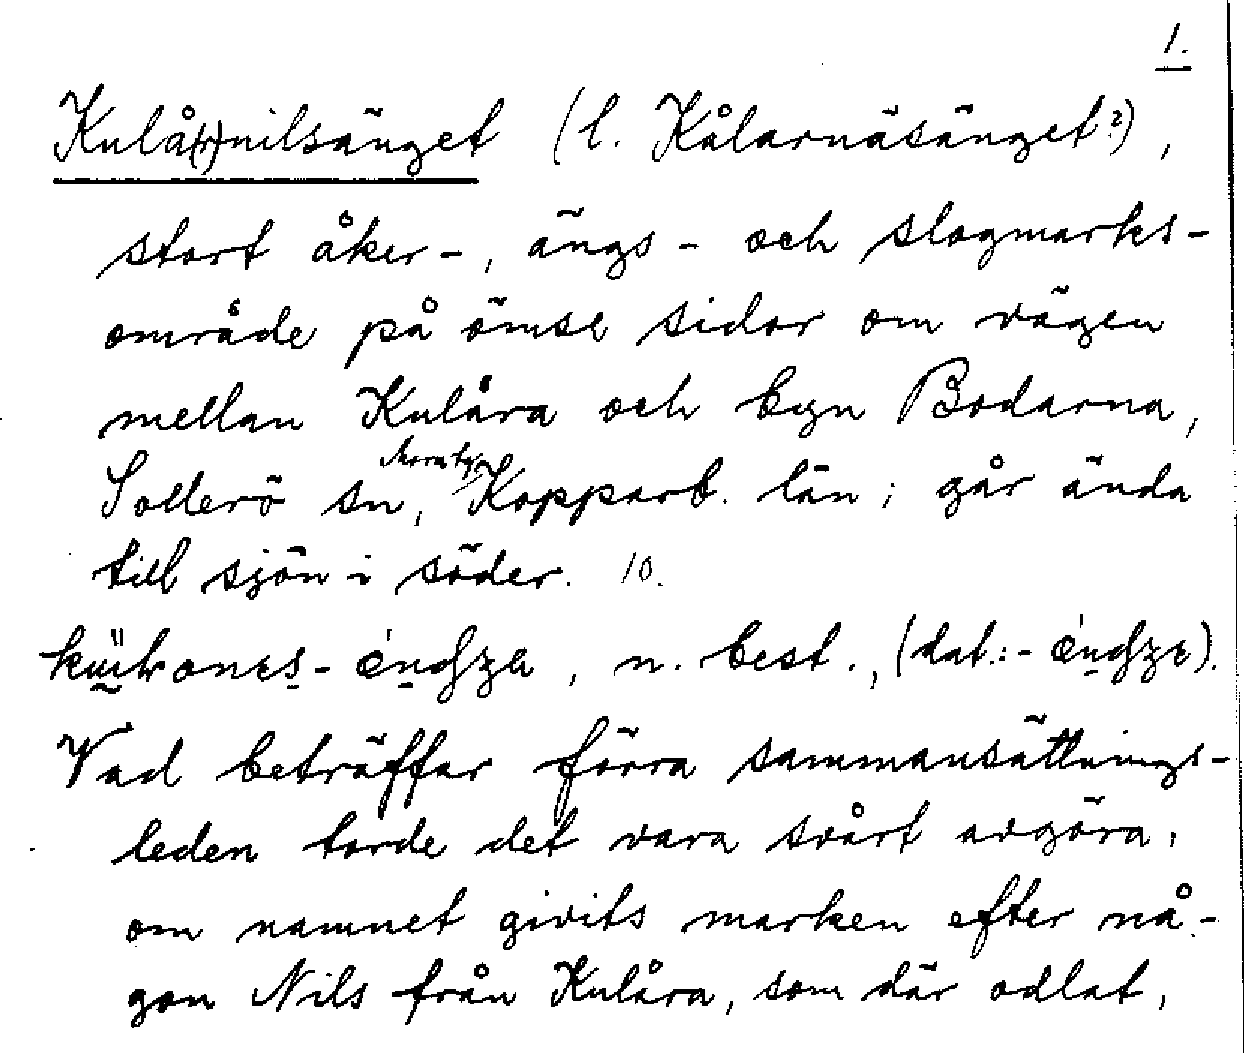 1.
Kulå(r)nilsänget (l. Kålarnäsänget?),
stort åker-, ängs- och slogmarks-
område på ömse sidor om vägen
mellan Kulåra och byn Bodarna,
Sollerö sn, Kopparb. län; går ända
till sjön i söder. 10.
n. best., (dat.:-
Vad beträffar förra sammansättnings-
leden torde det vara svårt avgöra,
om namnet givits marken efter nå-
gon Nils från Kulåra, som där odlat,